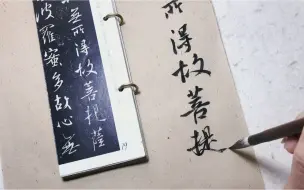 所得故菩提
無所得故菩提薩
波羅蜜多故心無